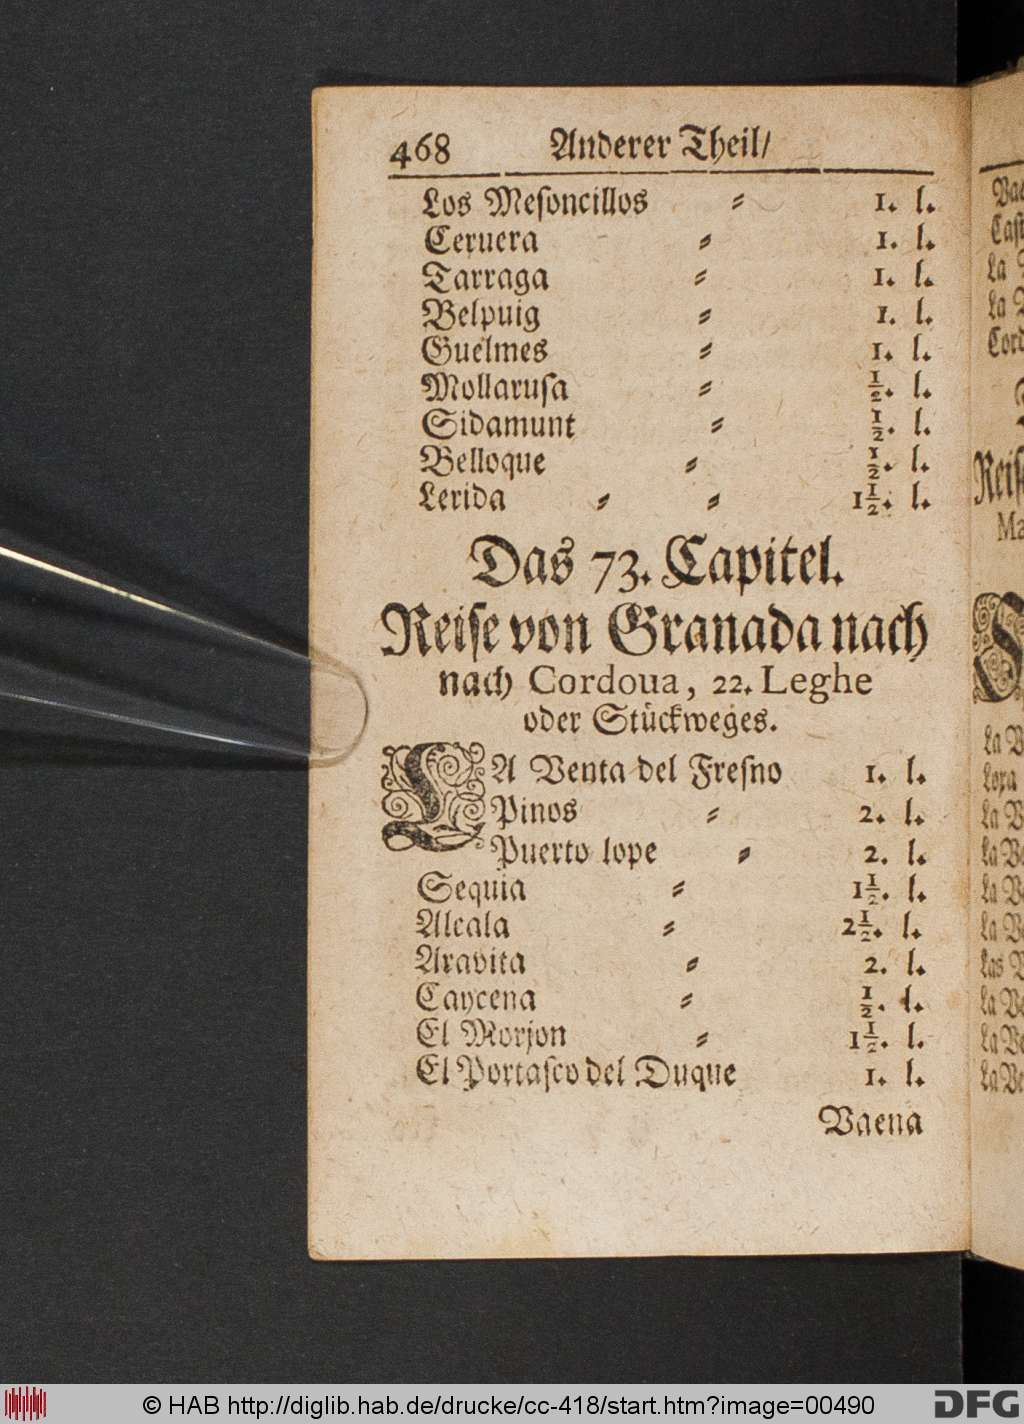 468 Anderer Theil/
Los Mesoncillos ⸗ 1. l.
Ceruera ⸗ 1. l.
Tarraga ⸗ 1. l.
Belpuig ⸗ 1. l.
Guelmes ⸗ 1. l.
Mollarusa ⸗ ½. l.
Sidamunt ⸗ ½. l.
Belloque ⸗ ½. l.
Lerida ⸗ ⸗ 1½. l.
Das 73. Capitel.
Reise von Granada nach
nach Cordoua, 22. Leghe
oder Stückweges.
LA Venta del Fresno 1. l.
Pinos ⸗ 2. l.
Puerto lope ⸗ 2. l.
Sequia ⸗ 1½. l.
Alcala ⸗ 2½. l.
Aravita ⸗ 2. l.
Caycena ⸗ ½. l.
El Morjon ⸗ 1½. l.
El Portasco del Duque 1. l.
Vaena
Reis
Ma
La V
Loxa
La V
La Ve
La Ve
La V
Las V
La Ve
La Ve
La Ve
© HAB http://diglib.hab.de/drucke/cc-418/start.htm?image=00490
DFG